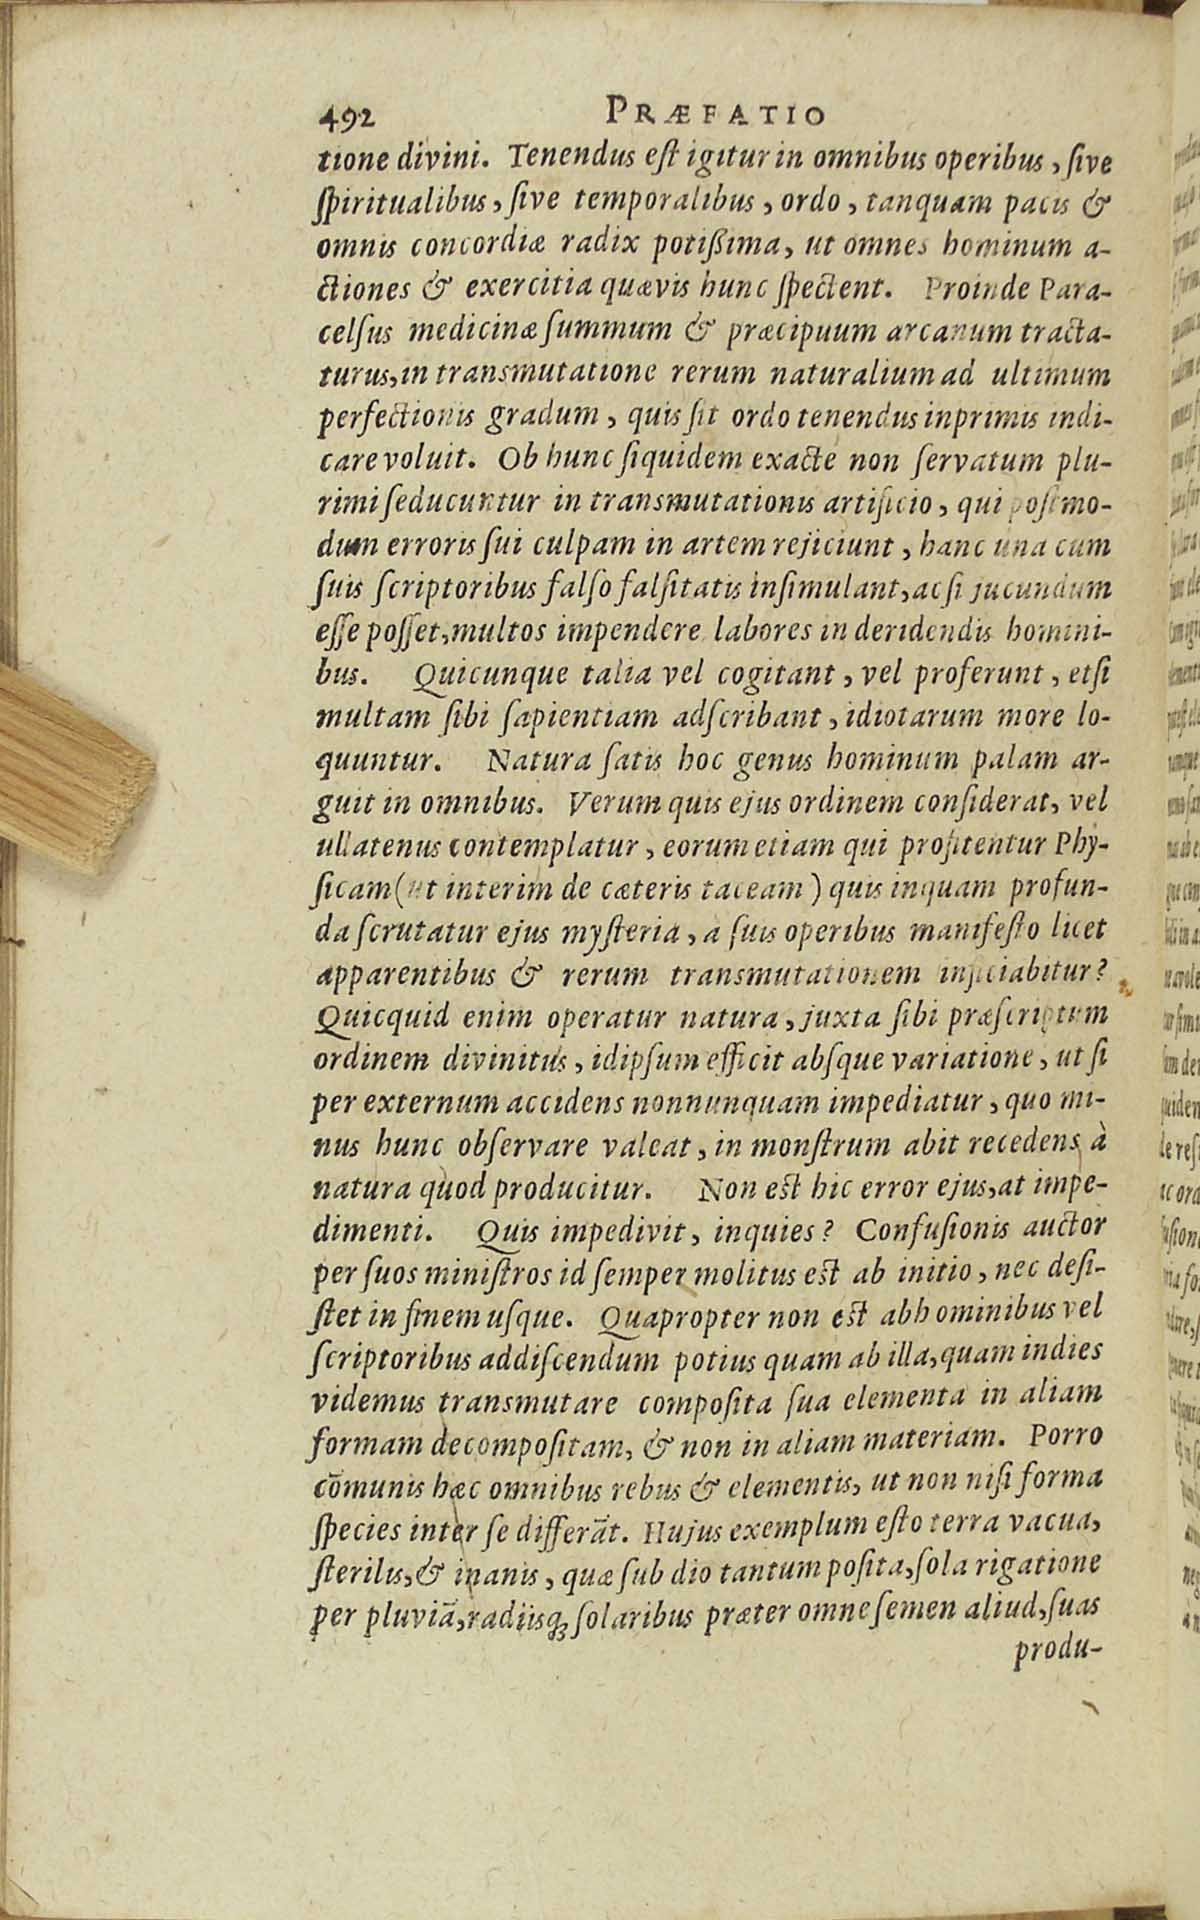 492 PRÆFATIO
tione divini. Tenendus eſt igitur in omnibus operibus, ſive
ſpiritualibus, ſive temporalibus, ordo, tanquam pacis &
omnis concordiæ radix potißima, ut omnes hominum a-
ctiones & exercitia quævis hunc ſpectent. Proinde Para-
celſus medicinæ ſummum & præcipuum arcanum tracta-
turus, in transmutatione rerum naturalium ad ultimum
perfectionis gradum, quis ſit ordo tenendus inprimis indi-
care voluit. Ob hunc ſiquidem exacte non ſervatum plu-
rimi ſeducuntur in transmutationis artificio, qui poſtmo-
dum erroris ſui culpam in artem rejiciunt, hanc una cum
ſuis ſcriptoribus falſo falſitatis inſimulant, ac ſi jucundum
eſſe poſſet, multos impendere labores in deridendis homini-
bus. Quicunque talia vel cogitant, vel proferunt, etſi
multam ſibi ſapientiam adſcribant, idiotarum more lo-
quuntur. Natura ſatis hoc genus hominum palam ar-
guit in omnibus. Verum quis ejus ordinem conſiderat, vel
ullatenus contemplatur, eorum etiam qui profitentur Phy-
ſicam (ut interim de cæteris taceam) quis inquam profun-
da ſcrutatur ejus myſteria, a ſuis operibus manifeſto licet
apparentibus & rerum transmutationem inficiabitur?
Quicquid enim operatur natura, juxta ſibi præſcriptum
ordinem divinitus, idipſum efficit abſque variatione, ut ſi
per externum accidens nonnunquam impediatur, quo mi-
nus hunc obſervare valeat, in monſtrum abit recedens à
natura quod producitur. Non est hic error ejus, at impe-
dimenti. Quis impedivit, inquies? Confuſionis auctor
per ſuos miniſtros id ſemper molitus est ab initio, nec deſi-
ſtet in finem uſque. Quapropter non est abhominibus vel
ſcriptoribus addiſcendum potius quam ab illa, quam indies
videmus transmutare compoſita ſua elementa in aliam
formam decompoſitam, & non in aliam materiam. Porro
cōmunis hæc omnibus rebus & elementis, ut non niſi forma
ſpecies inter ſe differāt. Hujus exemplum eſto terra vacua,
ſterilis, & inanis, quæ ſub dio tantum poſita, ſola rigatione
per pluviā, radiisq; ſolaribus præter omne ſemen aliud, ſuas
produ-